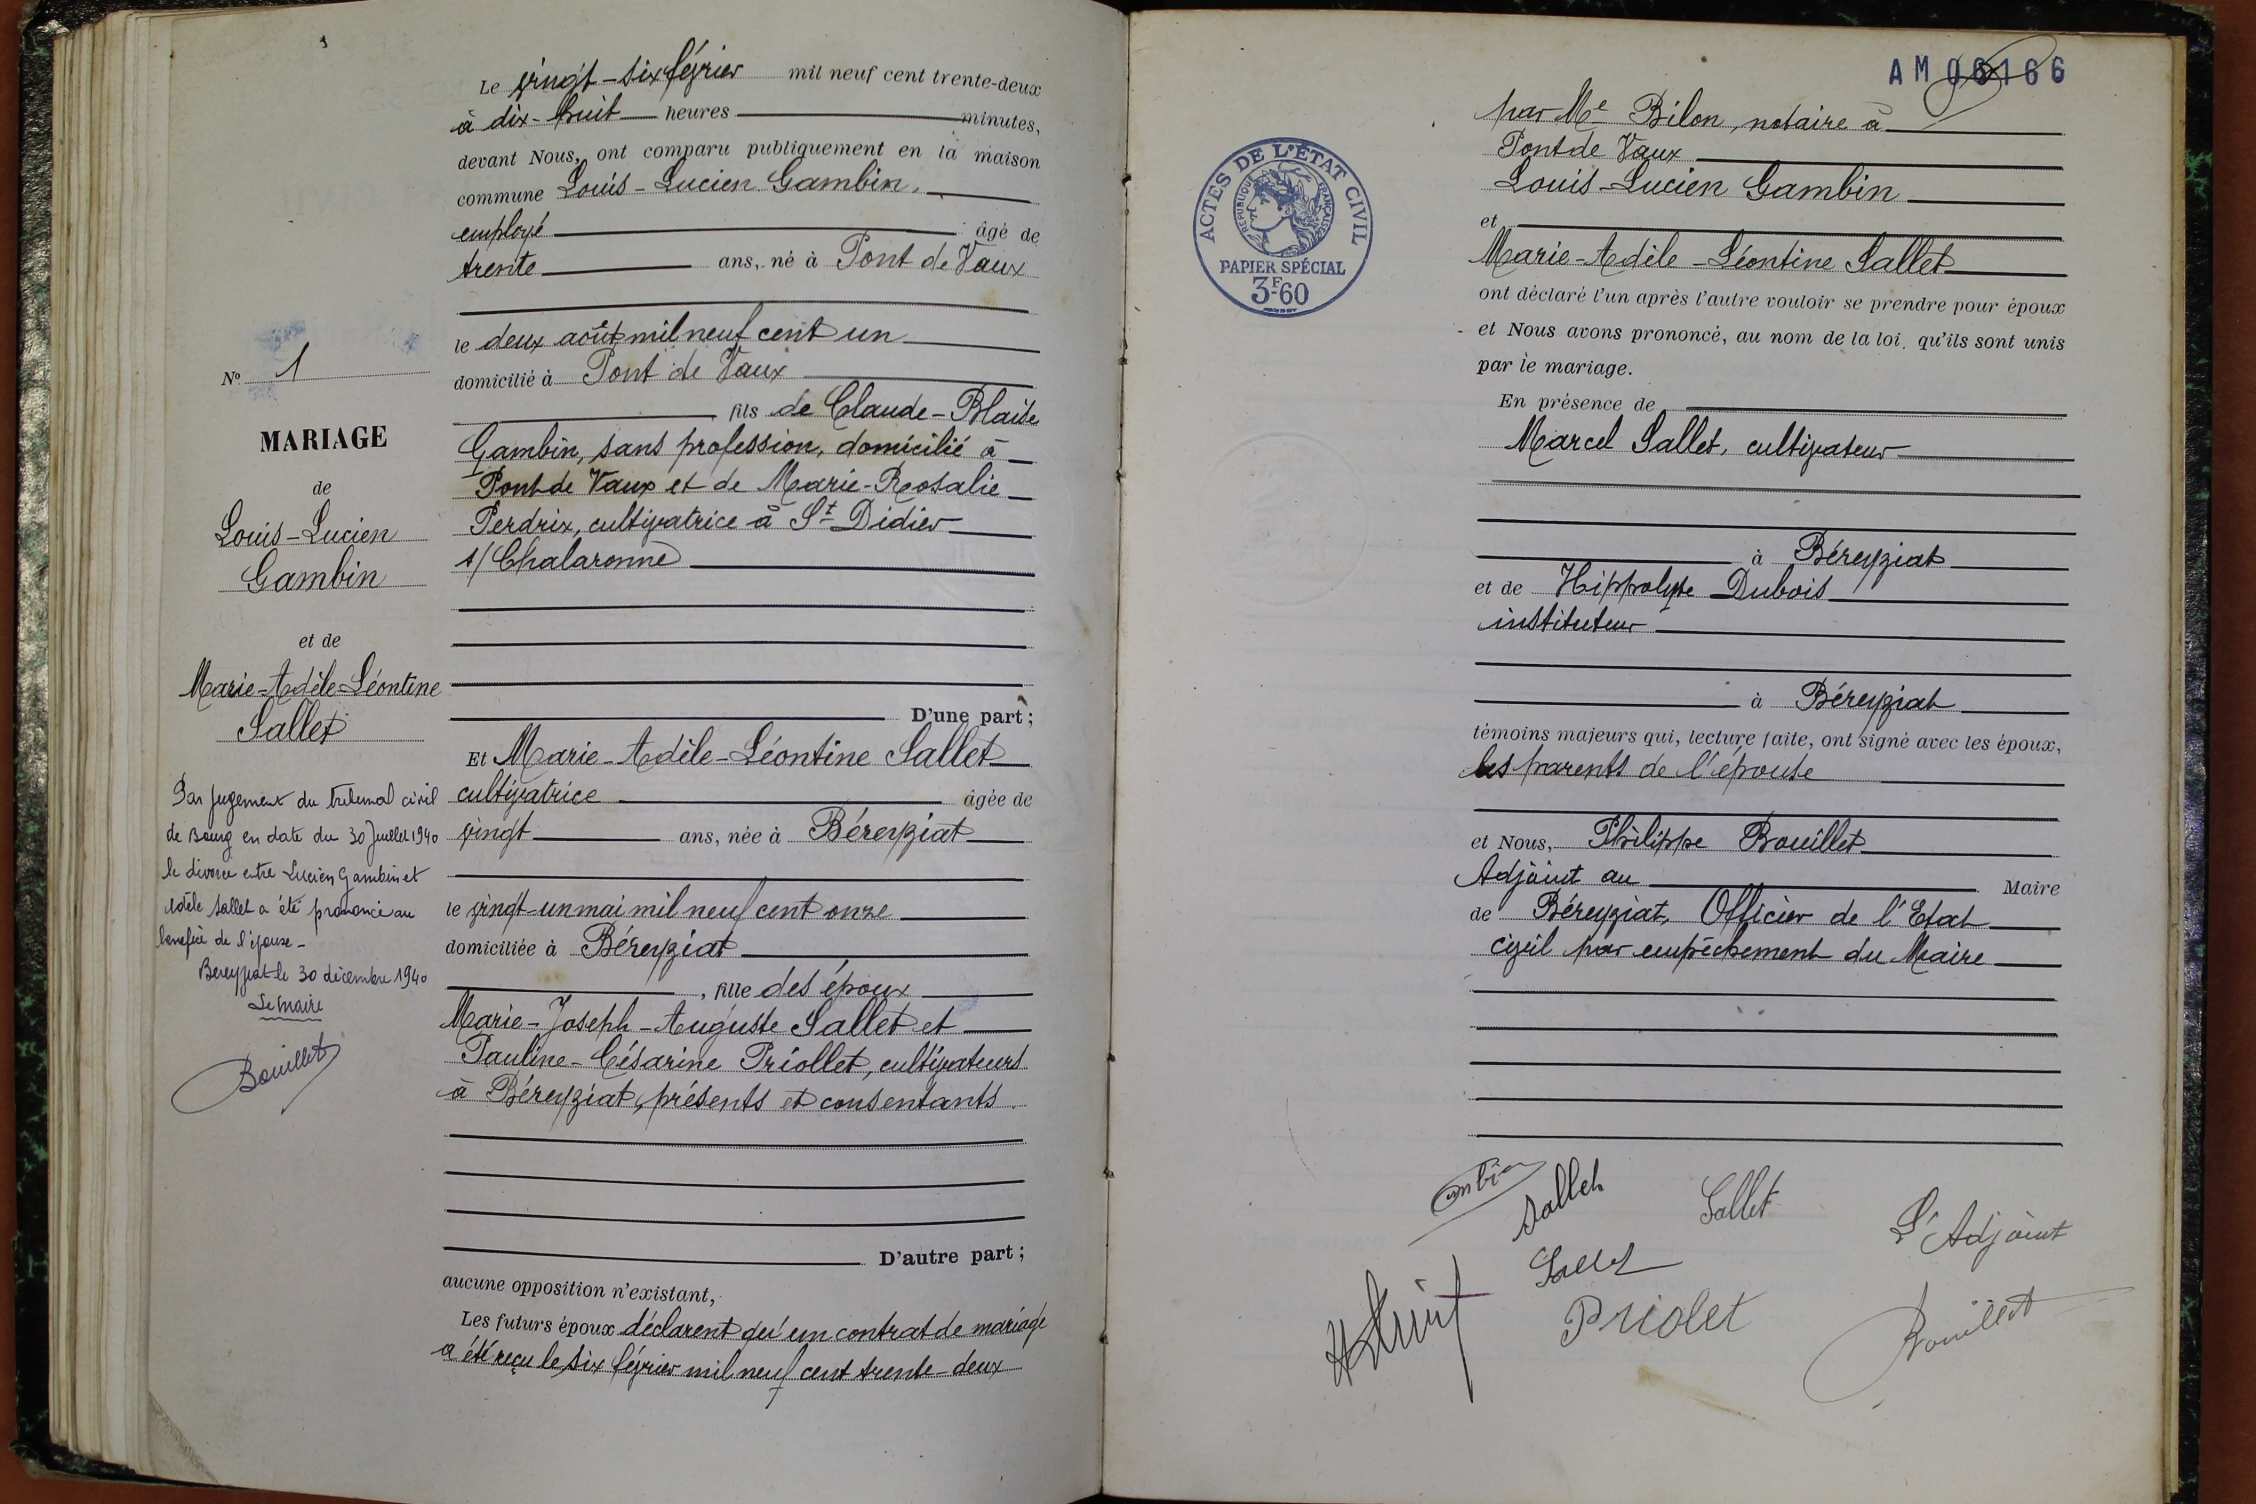 Le vingt-six février mil neuf cent trente-deux
à dix-huit heures minutes,
devant Nous, ont comparu publiquement en la maison
commune Louis-Lucien Gambin,
employé âgé de
trente ans, né à Pont de Vaux
le deux août mil neuf cent un
domicilié à Pont de Vaux
fils de Claude-Blaise
Gambin, sans profession, domicilié à
Pont de Vaux et de Marie-Rosalie
Perdrix, cultivatrice à St Didier
s/ Chalaronne
D'une part;
Et Marie-Adèle-Léontine Sallet
cultivatrice âgée de
vingt ans, née à Béreyziat
le vingt-un mai mil neuf cent onze
domiciliée à Béreyziat
, fille des époux
Marie-Joseph-Auguste Sallet et
Pauline-Césarine Priollet, cultivateurs
à Béreyziat, présents et consentants.
D'autre part;
aucune opposition n'existant,
Les futurs époux déclarent qu'un contrat de mariage
a été reçu le six février mil neuf cent trente-deux
No 1
MARIAGE
de
Louis-Lucien
Gambin
et de
Marie-Adèle-Léontine
Sallet
Par jugement du tribunal civil
de Bourg en date du 30 Juillet 1940
le divorce entre Lucien Gambin et
Adèle Sallet a été prononcé au
bénéfice de l'épouse-
Bereyziat le 30 décembre 1940
Le Maire
Bouillet
AM 06166
ACTES DE L'ÉTAT CIVIL
RÉPUBLIQUE FRANÇAISE
PAPIER SPÉCIAL
3F60
par Me Bilon, notaire à
Pont de Vaux
Louis-Lucien Gambin
et
Marie-Adèle-Léontine Sallet
ont déclaré l'un après l'autre vouloir se prendre pour époux
et Nous avons prononcé, au nom de la loi, qu'ils sont unis
par le mariage.
En présence de
Marcel Sallet, cultivateur
à Béreyziat
et de Hippolyte Dubois
instituteur
à Béreyziat
témoins majeurs qui, lecture faite, ont signé avec les époux,
les parents de l'épouse
et Nous, Philippe Bouillet
Adjoint au Maire
de Béreyziat, Officier de l'Etat
civil par empêchement du Maire
Sallet
Sallet
L'Adjoint
Sallet
Priolet
Bouillet